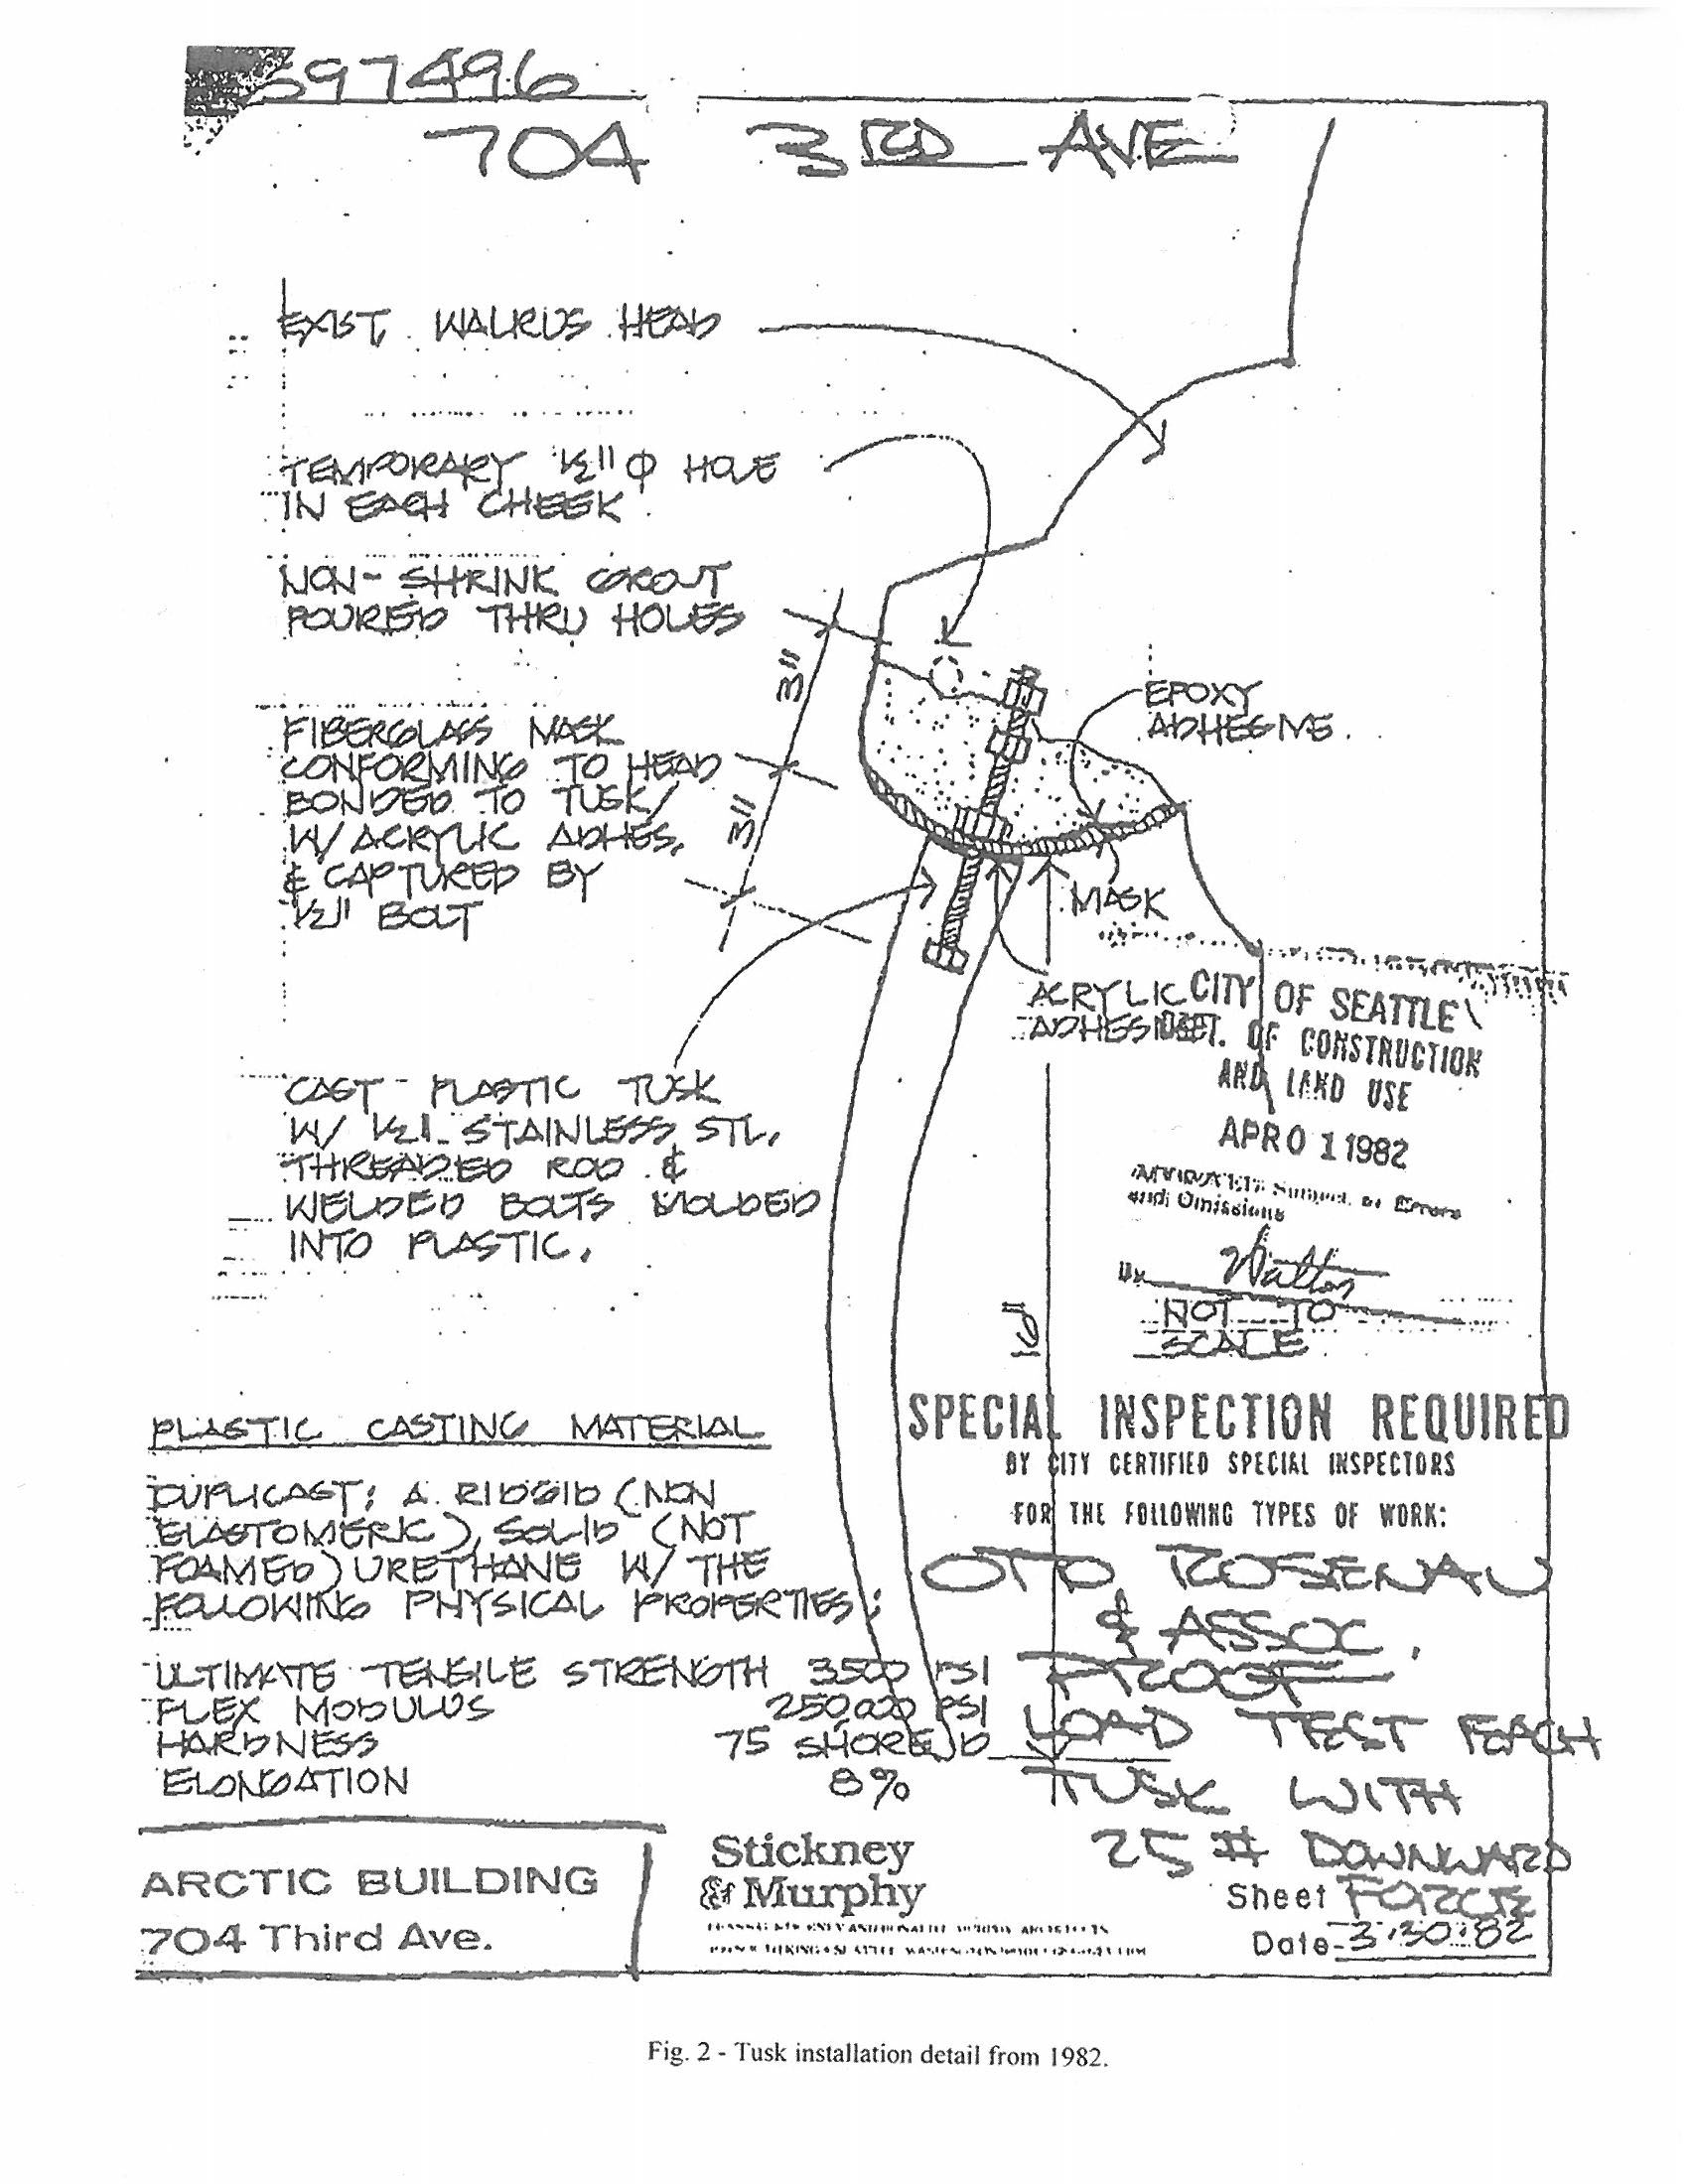 597496
704 3RD AVE
EXIST. WALRUS HEAD
TEMPORARY ½" φ HOLE
IN EACH CHEEK
NON-SHRINK GROUT
POURED THRU HOLES
3"
FIBERGLASS MASK
CONFORMING TO HEAD
BONDED TO TUSK/
W/ ACRYLIC ADHES.
& CAPTURED BY
½" BOLT
3"
EPOXY
ADHESIVE.
MASK
ACRYLIC
ADHESIVE
CITY OF SEATTLE
DEPT. OF CONSTRUCTION
AND LAND USE
APR 01 1982
APPROVED Subject to Errors
and Omissions
By Walton
NOT TO
SCALE
CAST-PLASTIC TUSK
W/ ½" STAINLESS STL.
THREADED ROD &
WELDED BOLTS MOLDED
INTO PLASTIC.
16"
PLASTIC CASTING MATERIAL
DUPLICAST: A RIDGID (NON
ELASTOMERIC), SOLID (NOT
FOAMED) URETHANE W/ THE
FOLLOWING PHYSICAL PROPERTIES:
ULTIMATE TENSILE STRENGTH 3500 PSI
FLEX MODULUS 250,000 PSI
HARDNESS 75 SHORE D
ELONGATION 8%
SPECIAL INSPECTION REQUIRED
BY CITY CERTIFIED SPECIAL INSPECTORS
FOR THE FOLLOWING TYPES OF WORK:
OTTO ROSENAU
& ASSOC.
PROOF
LOAD TEST EACH
TUSK WITH
25 # DOWNWARD
FORCE
ARCTIC BUILDING
704 Third Ave.
Stickney
& Murphy
Sheet
Date 3·30·82
Fig. 2 - Tusk installation detail from 1982.